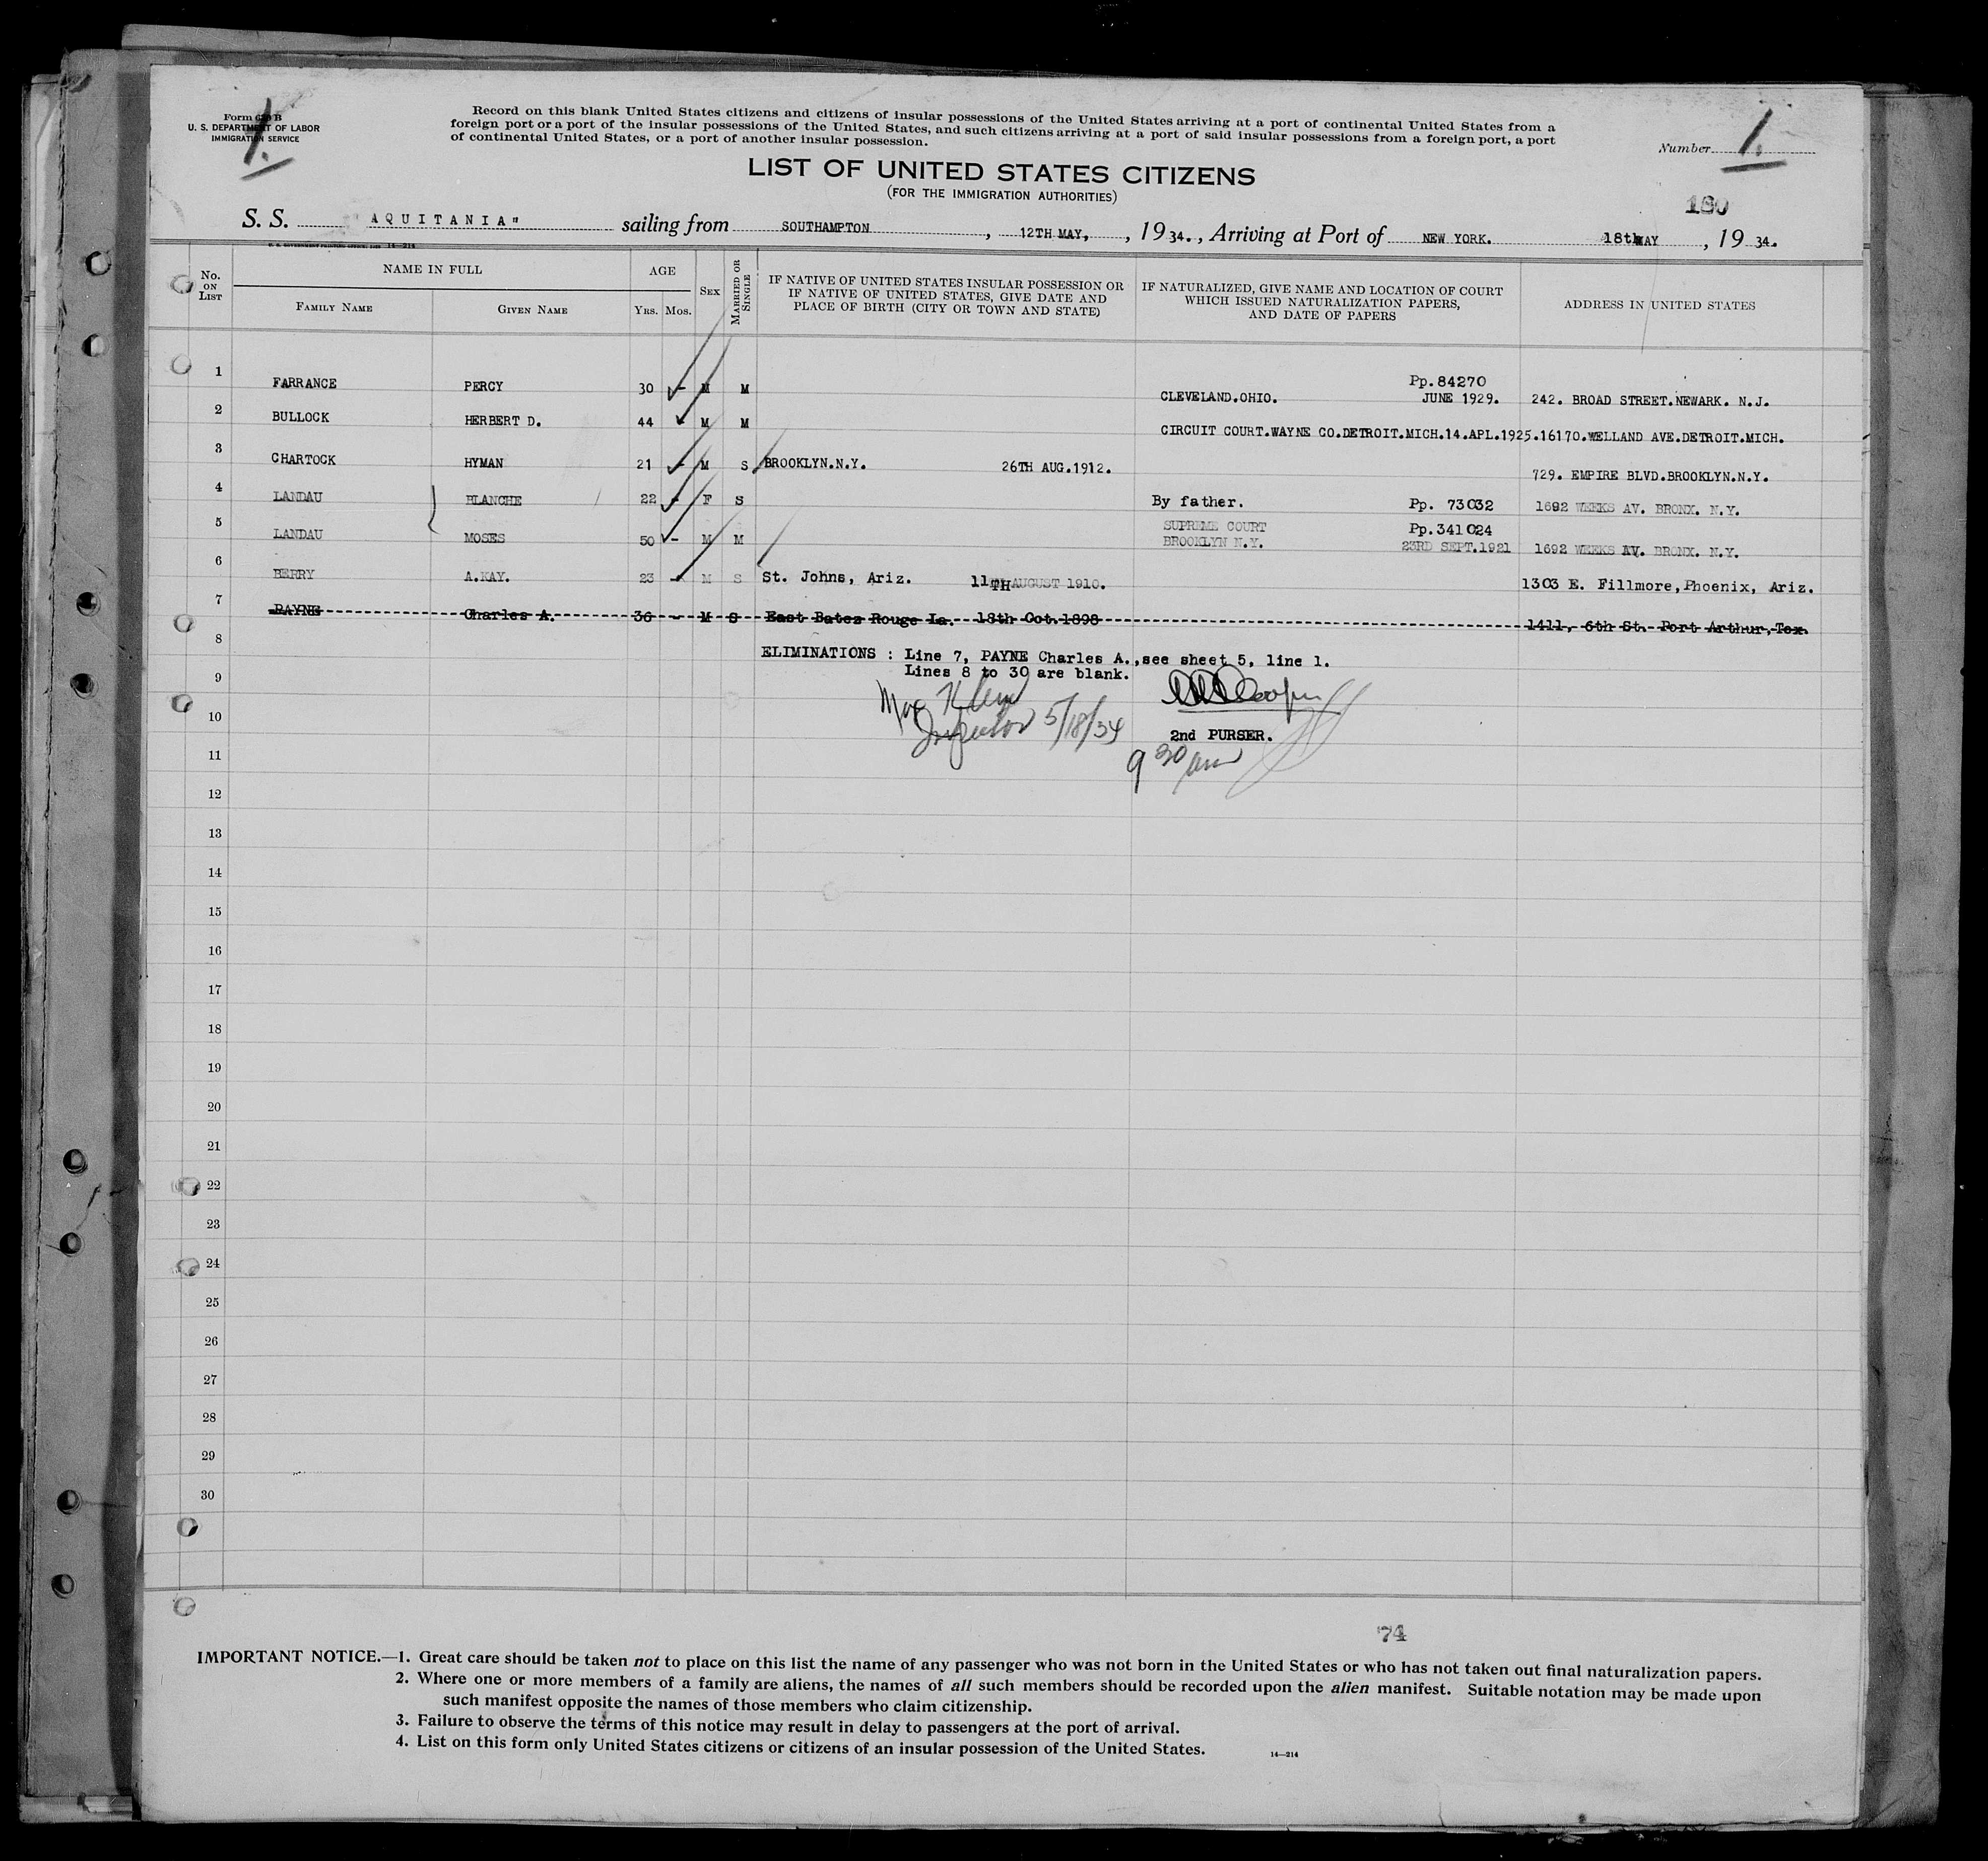 Form 630 B
U. S. DEPARTMENT OF LABOR
IMMIGRATION SERVICE
1.
Record on this blank United States citizens and citizens of insular possessions of the United States arriving at a port of continental United States from a
foreign port or a port of the insular possessions of the United States, and such citizens arriving at a port of said insular possessions from a foreign port, a port
of continental United States, or a port of another insular possession.
Number 1.
LIST OF UNITED STATES CITIZENS
(FOR THE IMMIGRATION AUTHORITIES)
180
S. S. "AQUITANIA" sailing from SOUTHAMPTON, 12TH MAY, , 19 34. , Arriving at Port of NEW YORK. 18th MAY , 19 34.
U. S. GOVERNMENT PRINTING OFFICE 14—214
No. ON LIST NAME IN FULL AGE SEX MARRIED OR SINGLE IF NATIVE OF UNITED STATES INSULAR POSSESSION OR IF NATIVE OF UNITED STATES, GIVE DATE AND PLACE OF BIRTH (CITY OR TOWN AND STATE) IF NATURALIZED, GIVE NAME AND LOCATION OF COURT WHICH ISSUED NATURALIZATION PAPERS, AND DATE OF PAPERS ADDRESS IN UNITED STATES
FAMILY NAME GIVEN NAME YRS. MOS.
1 FARRANCE PERCY 30 - M M CLEVELAND.OHIO. Pp.84270 JUNE 1929. 242. BROAD STREET.NEWARK. N.J.
2 BULLOCK HERBERT D. 44 M M CIRCUIT COURT.WAYNE CO.DETROIT.MICH.14.APL.1925. 16170.WELLAND AVE.DETROIT.MICH.
3 CHARTOCK HYMAN 21 - M S BROOKLYN.N.Y. 26TH AUG.1912. 729. EMPIRE BLVD.BROOKLYN.N.Y.
4 LANDAU BLANCHE 22 - F S By father. Pp. 73032 1692 WEEKS AV. BRONX. N.Y.
5 LANDAU MOSES 50 - M M SUPREME COURT BROOKLYN N.Y. Pp.341024 23RD SEPT.1921 1692 WEEKS AV. BRONX. N.Y.
6 BERRY A.KAY. 23 - M S St. Johns, Ariz. 11TH AUGUST 1910. 1303 E. Fillmore,Phoenix, Ariz.
7 PAYNE Charles A. 36 - M S East Batez Rouge La. 18th Oct.1898 1411, 6th St. Port Arthur,Tex.
8 ELIMINATIONS : Line 7, PAYNE Charles A.,see sheet 5, line 1.
9 Lines 8 to 30 are blank.
10 Inspector 5/18/34 2nd PURSER.
11 9 30 am
12
13
14
15
16
17
18
19
20
21
22
23
24
25
26
27
28
29
30
74
IMPORTANT NOTICE.—1. Great care should be taken not to place on this list the name of any passenger who was not born in the United States or who has not taken out final naturalization papers.
2. Where one or more members of a family are aliens, the names of all such members should be recorded upon the alien manifest. Suitable notation may be made upon
such manifest opposite the names of those members who claim citizenship.
3. Failure to observe the terms of this notice may result in delay to passengers at the port of arrival.
4. List on this form only United States citizens or citizens of an insular possession of the United States.
14—214